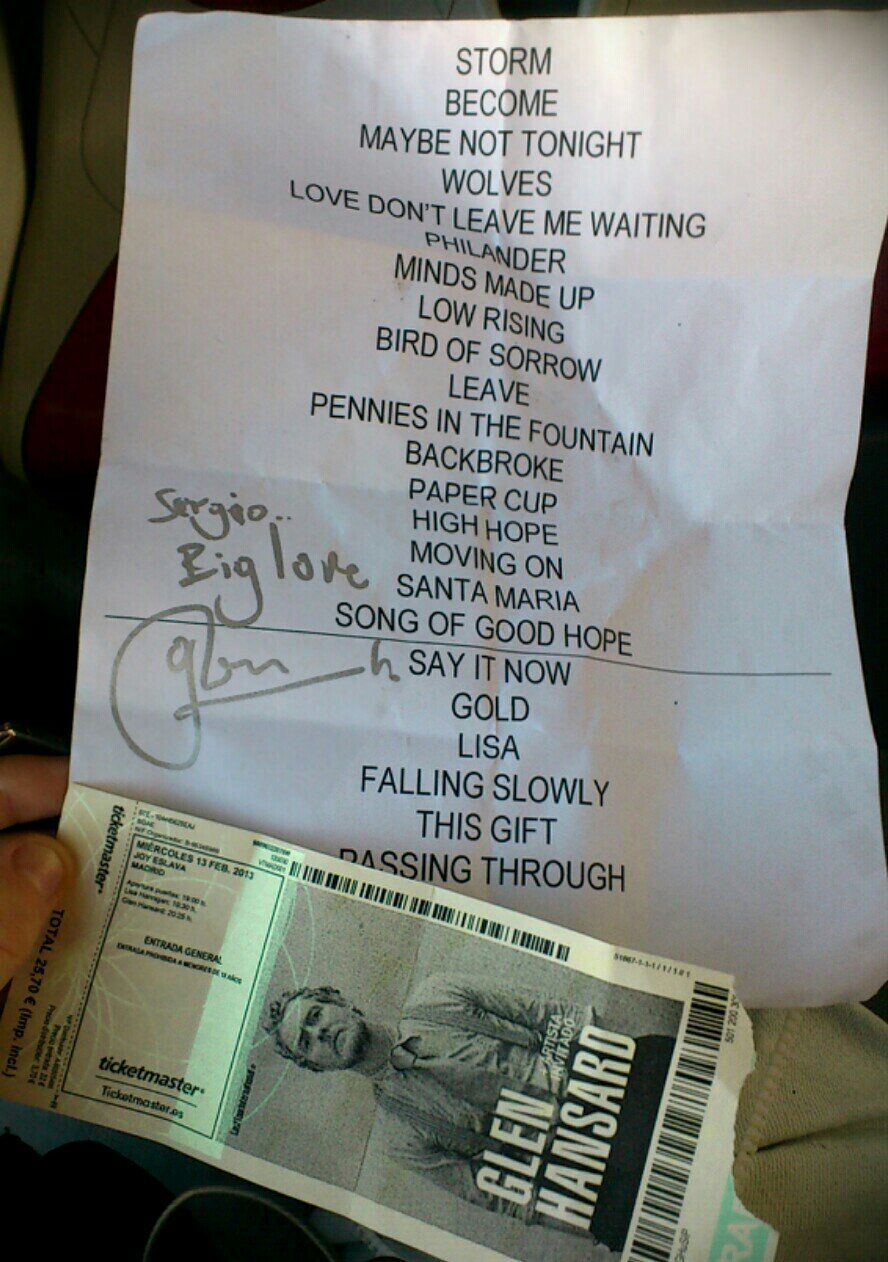 STORM
BECOME
MAYBE NOT TONIGHT
WOLVES
LOVE DON'T LEAVE ME WAITING
PHILANDER
MINDS MADE UP
LOW RISING
BIRD OF SORROW
LEAVE
PENNIES IN THE FOUNTAIN
BACKBROKE
PAPER CUP
HIGH HOPE
MOVING ON
SANTA MARIA
SONG OF GOOD HOPE
SAY IT NOW
GOLD
LISA
FALLING SLOWLY
THIS GIFT
PASSING THROUGH
Sergio..
Big love
Glen h
ticketmaster
MIÉRCOLES 13 FEB. 2013
JOY ESLAVA
MADRID
Apertura puertas: 19:00 h.
Lisa Hannigan: 19:30 h.
Glen Hansard: 20:25 h.
ENTRADA GENERAL
ENTRADA PROHIBIDA A MENORES DE 18 AÑOS
ticketmaster
Ticketmaster.es
TOTAL 25,70 € (Imp. incl.)
ARTISTA
INVITADO
GLEN
HANSARD
RA